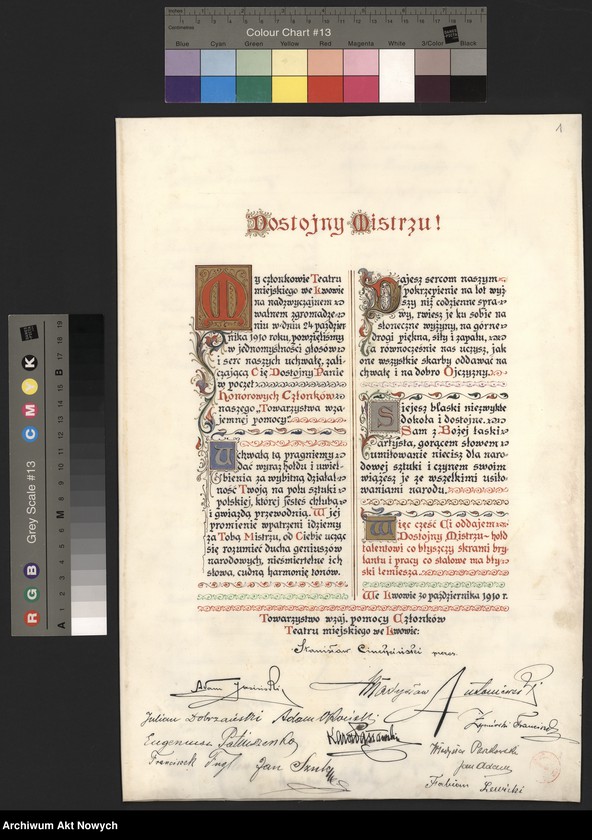 Colour Chart #13
Blue Cyan Green Yellow Red Magenta White 3/Color Black
Grey Scale #13
R G B C M Y K
A M B
1
Dostojny Mistrzu!
My członkowie Teatru
miejskiego we Lwowie
na nadzwyczajnem
walnem zgromadze-
niu w dniu 24 paździer
nika 1910 roku, powzięliśmy
w jednomyślności głosów
i serc naszych uchwałę, zali-
czającą Cię Dostojny Panie
w poczet
Honorowych Członków
naszego „Towarzystwa wza-
jemnej pomocy."
Uchwałą tą pragniemy
dać wyraz hołdu i uwiel-
bienia za wybitną działal-
ność Twoją na polu sztuki
polskiej, której jesteś chlubą
i gwiazdą przewodnią. W jej
promienie wpatrzeni idziemy
za Tobą Mistrzu, od Ciebie ucząc
się rozumieć ducha geniuszów
narodowych, nieśmiertelne ich
słowa, cudną harmonię tonów.
Dajesz sercom naszym
pokrzepienie na lot wyż
szy niż codzienne spra-
wy, rwiesz je ku sobie na
słoneczne wyżyny, na górne
drogi piękna, siły i zapału,
a równocześnie nas uczysz, jak
one wszystkie skarby oddawać na
chwałę i na dobro Ojczyzny.
Siejesz blaski niezwykłe
dokoła i dostojne.
Sam z Bożej łaski
artysta, gorącem słowem
umiłowanie niecisz dla naro-
dowej sztuki i czynem swoim
wiążesz je ze wszelkimi usiło-
waniami narodu.
Więc cześć Ci oddajem
Dostojny Mistrzu – hołd
talentowi co błyszczy skrami bry-
lantu i pracy co stalowe ma bły-
ski lemiesza.
We Lwowie 30 października 1910 r.
Towarzystwo wzaj. pomocy Członków
Teatru miejskiego we Lwowie:
Stanisław prezes
Adam Władysław Antoniewski
Juljan Dobrzański Adam Okoński
Franciszek
Eugeniusz
Władysław
Franciszek Jan
Jan Adam
Fabian Lewicki
Archiwum Akt Nowych